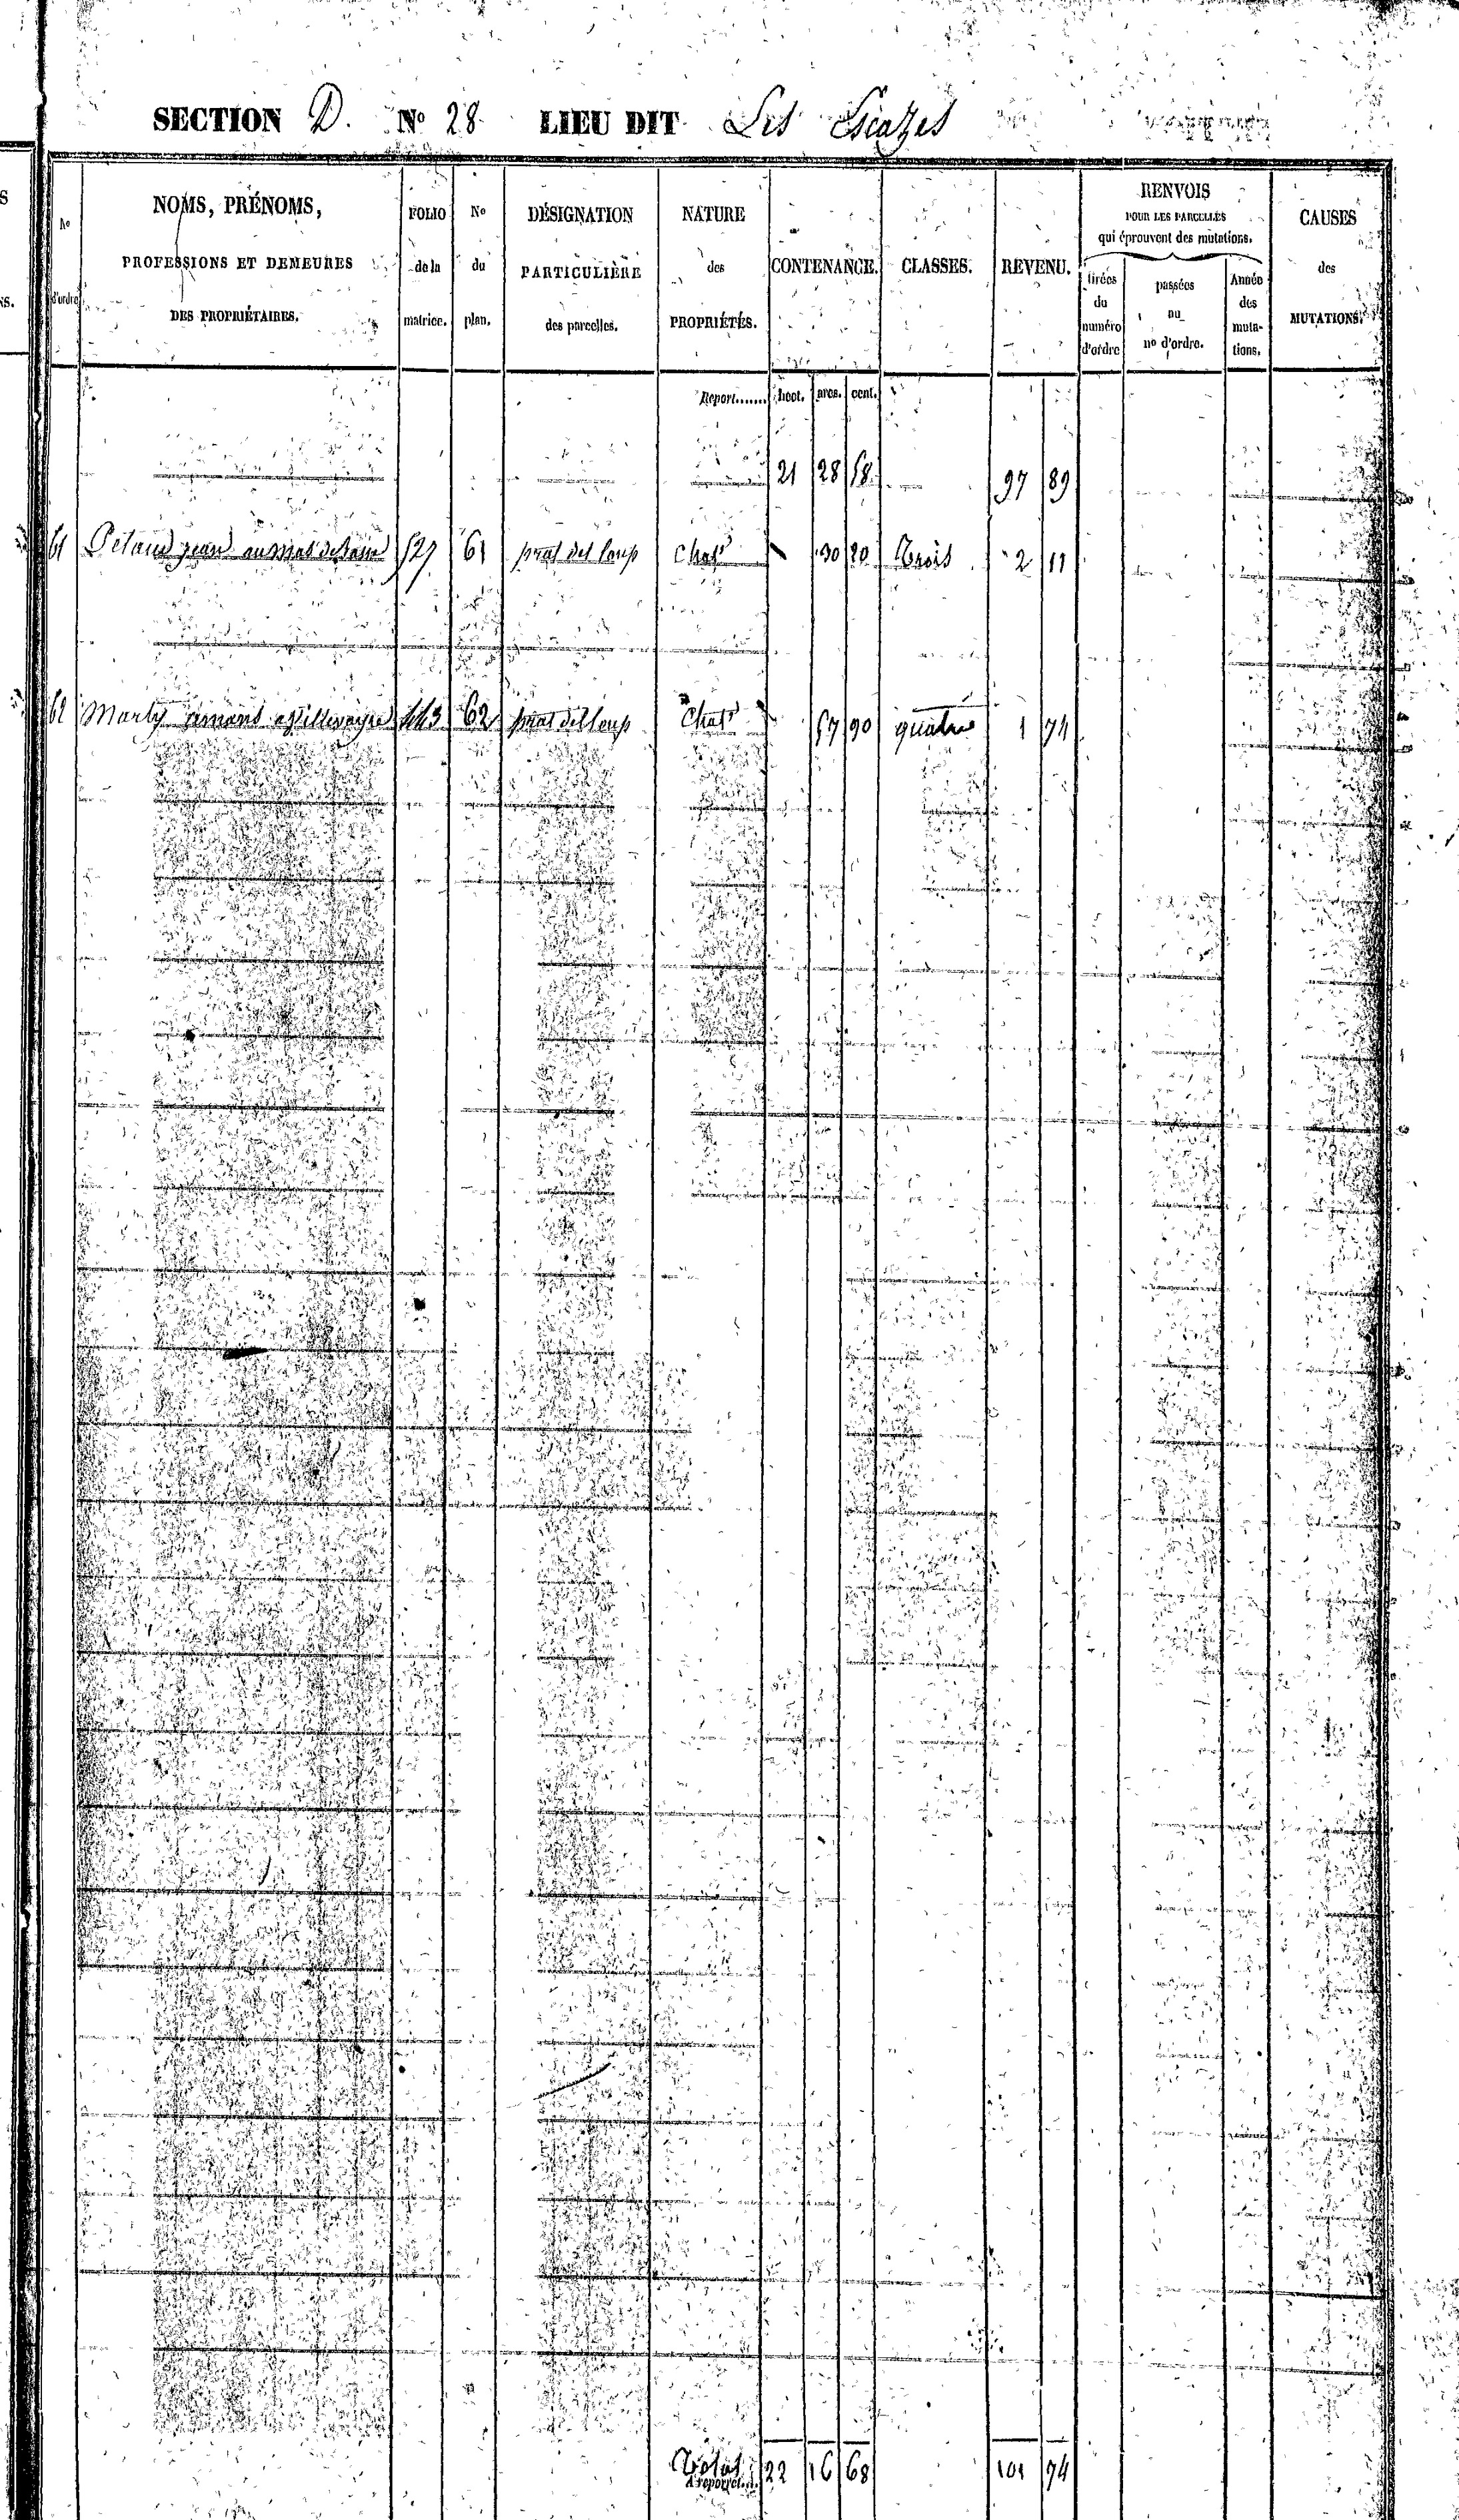 SECTION D. Nº 28 LIEU DIT Les Escazes
Nº d'ordre
NOMS, PRÉNOMS,
PROFESSIONS ET DEMEURES
DES PROPRIÉTAIRES.
FOLIO
de la
matrice.
Nº
du
plan.
DÉSIGNATION
PARTICULIÈRE
des parcelles.
NATURE
des
PROPRIÉTÉS.
CONTENANCE.
CLASSES.
REVENU.
RENVOIS
POUR LES PARCELLES
qui éprouvent des mutations.
tirées
du
numéro
d'ordre
passées
au
nº d'ordre.
Année
des
muta-
tions.
CAUSES
des
MUTATIONS.
Report....... hect. ares. cent.
21 28 58 97 89
61 jean 527 61 prat del loup Chat 30 20 Trois 2 11
62 Marty amans 443 62 prat del loup Chat 57 90 quatre 1 74
Total 22 16 68 101 74
à reporter